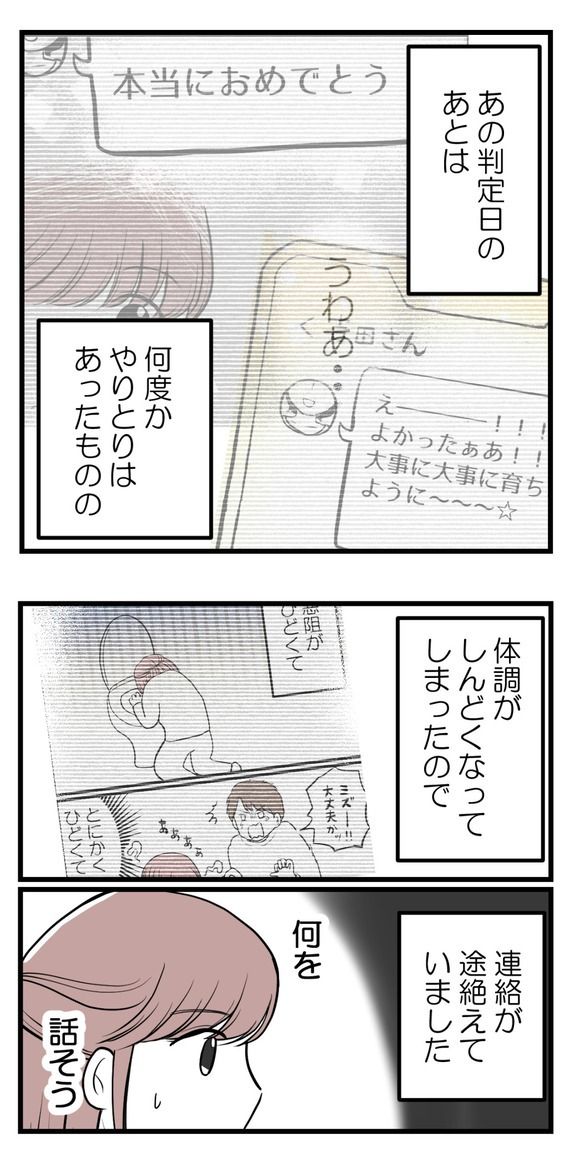 あの判定日の
あとは
本当におめでとう
うわあ・・
田さん
えーーーー！！！
よかったぁあ！！
大事に大事に育ち
ように〜〜〜☆
何度か
やりとりは
あったものの
体調が
しんどくなって
しまったので
悪阻が
ひどくて
ミズー！！
大丈夫かッ
ああああ
とにかく
ひどくて
連絡が
途絶えて
いました
何を
話そう